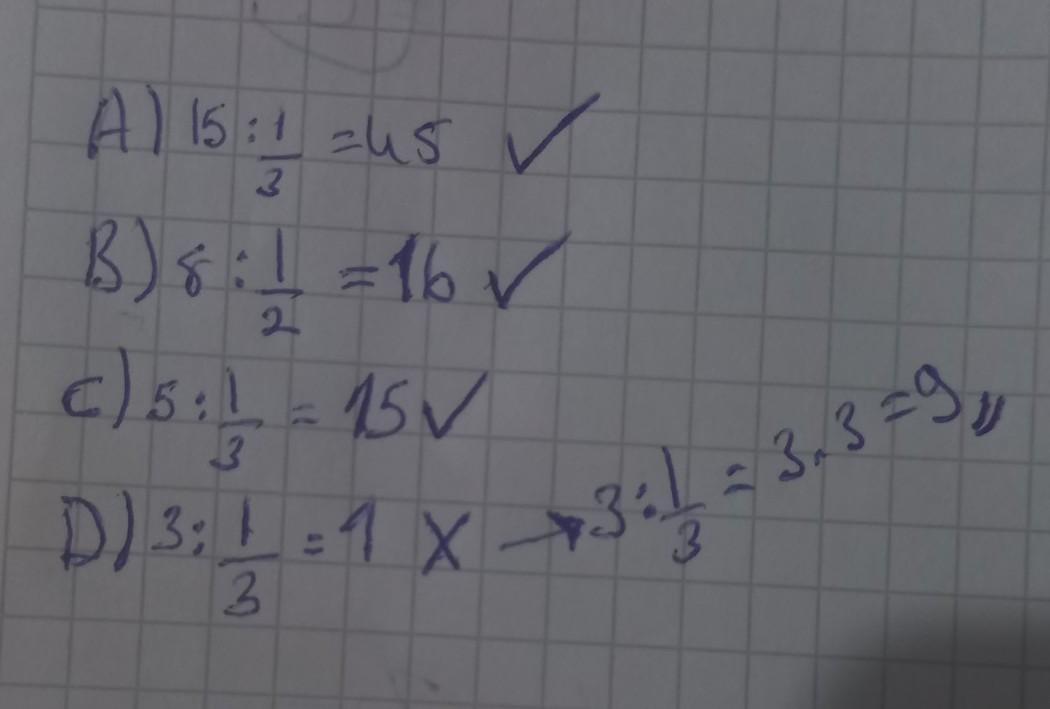 A) 15 : 1/3 = 45 ✓
B) 8 : 1/2 = 16 ✓
C) 5 : 1/3 = 15 ✓
D) 3 : 1/3 = 1 X → 3 : 1/3 = 3 . 3 = 9 //